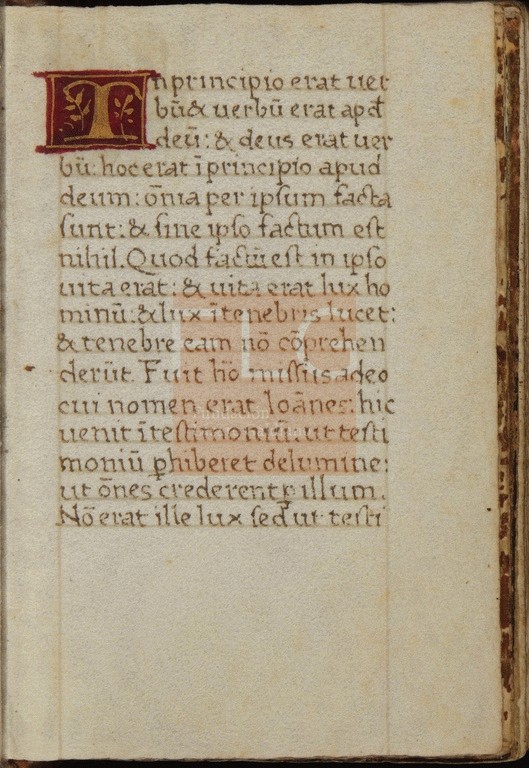 In principio erat uer
bū & uerbū erat apđ
deū: & deus erat uer
bū: hoc erat ī principio apud
deum: ōnia per ipsum facta
sunt: & sine ipso factum est
nihil. Quod factū est in ipso
uita erat: & uita erat lux ho
minū: & lux ī tenebris lucet:
& tenebre eam nō cōprehen
derūt. Fuit hō missus a deo
cui nomen erat Ioānes: hic
uenit ī testimoniū: ut testi
moniū ꝑhiberet de lumine:
ut ōnes crederent ꝑ illum.
Nō erat ille lux sed ut testi